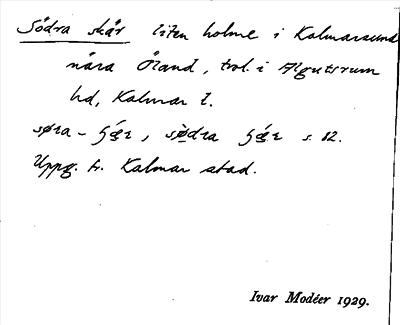 Södra skär liten holme i Kalmarsund
nära Öland, trol. i Algutsrum
hd, Kalmar l.
søra - , sødra s. 82.
Uppg. fr. Kalmar stad.
Ivar Modéer 1929.